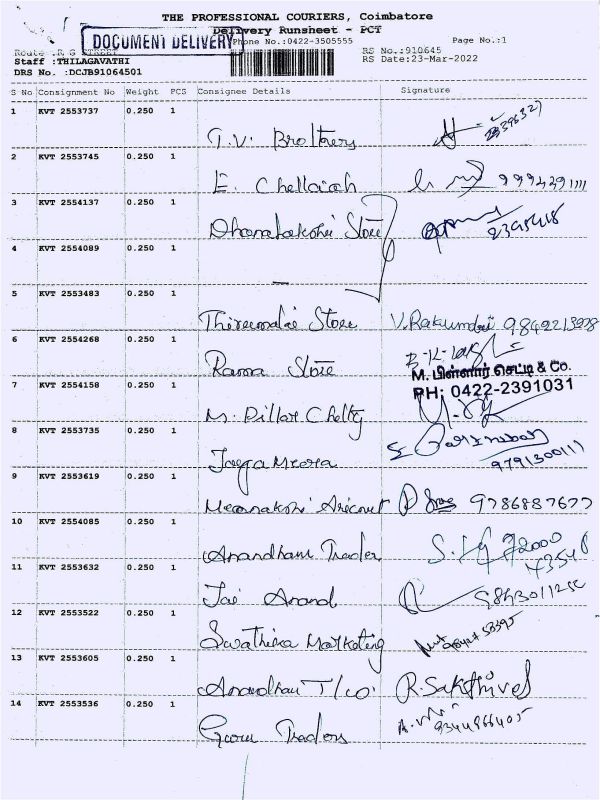 THE PROFESSIONAL COURIERS, Coimbatore
Delivery Runsheet - PCT
DOCUMENT DELIVERY
Phone No.:0422-3505555 Page No.:1
Route :R G STREET RS No.:910645
Staff :THILAGAVATHI RS Date:23-Mar-2022
DRS No. :DCJB91064501
S No Consignment No Weight PCS Consignee Details Signature
1 KVT 2553737 0.250 1
T.V. Brothers
2 KVT 2553745 0.250 1
E. Chellaiah
3 KVT 2554137 0.250 1
Dhanalakshmi Store 2395418
4 KVT 2554089 0.250 1
5 KVT 2553483 0.250 1
Store
6 KVT 2554268 0.250 1
Rama Store
M. பிள்ளார் செட்டி & Co.
7 KVT 2554158 0.250 1
PH: 0422-2391031
M. Pillar Chetty
8 KVT 2553735 0.250 1
9791300111
9 KVT 2553619 0.250 1
Meenakshi Arecnut 9786887677
10 KVT 2554085 0.250 1
Anandham Trader
11 KVT 2553632 0.250 1
Jai Anand
12 KVT 2553522 0.250 1
Swathika Marketing
13 KVT 2553605 0.250 1
Anandham T/co. R. Sakthivel
14 KVT 2553536 0.250 1
Gowri Traders 9344966405